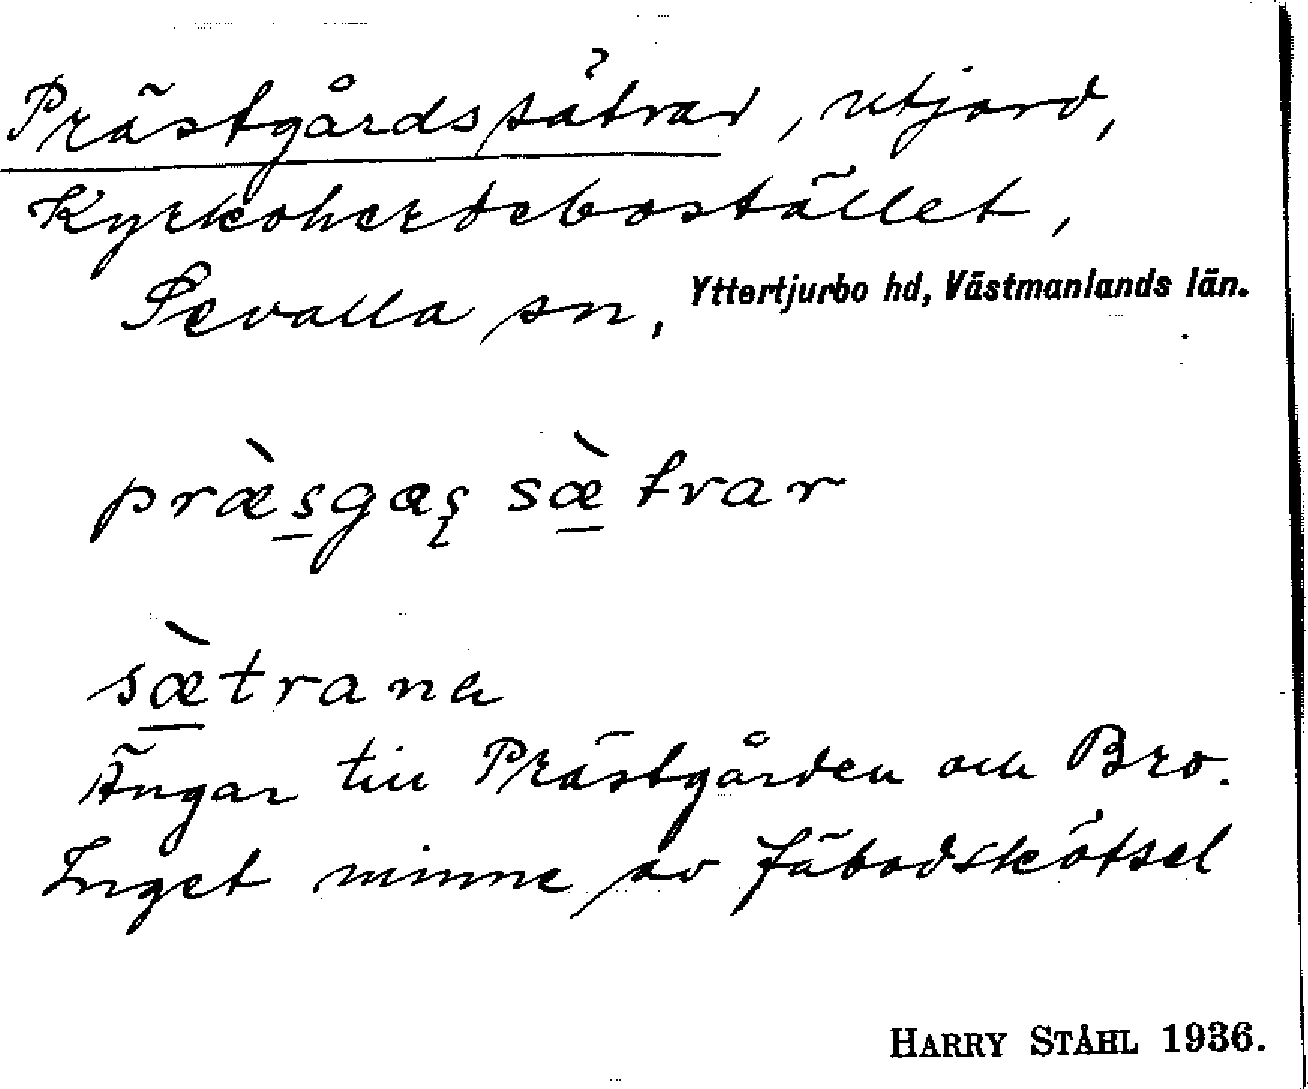 Prästgårdssätrar, utjord,
Kyrkoherdebostället,
Sevalla sn, Yttertjurbo hd, Västmanlands län.
præ̀s̲gaʂ sæ̲̀trar
sæ̲̀trana
Ängar till Prästgården och Bro.
Inget minne av fäbodskötsel
HARRY STÅHL 1936.